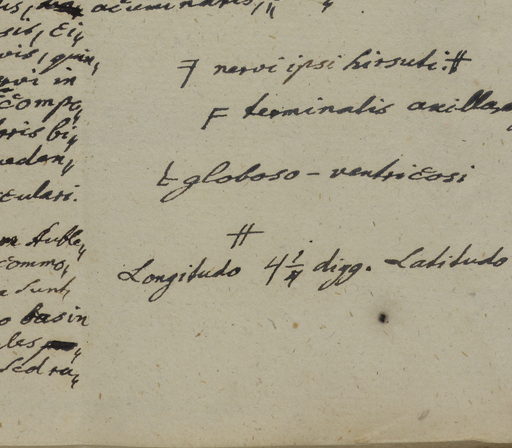 acuminatis,
sis, Ei„
vis, quin„
rvi in
compo„
bi„
cculari.
commo„
a sunt„
o basin
les
sed ra„
nervi ipsi hirsuti. #
F terminalis axillar
globoso-ventricosi
#
Longitudo 4 1/4 digg. Latitudo